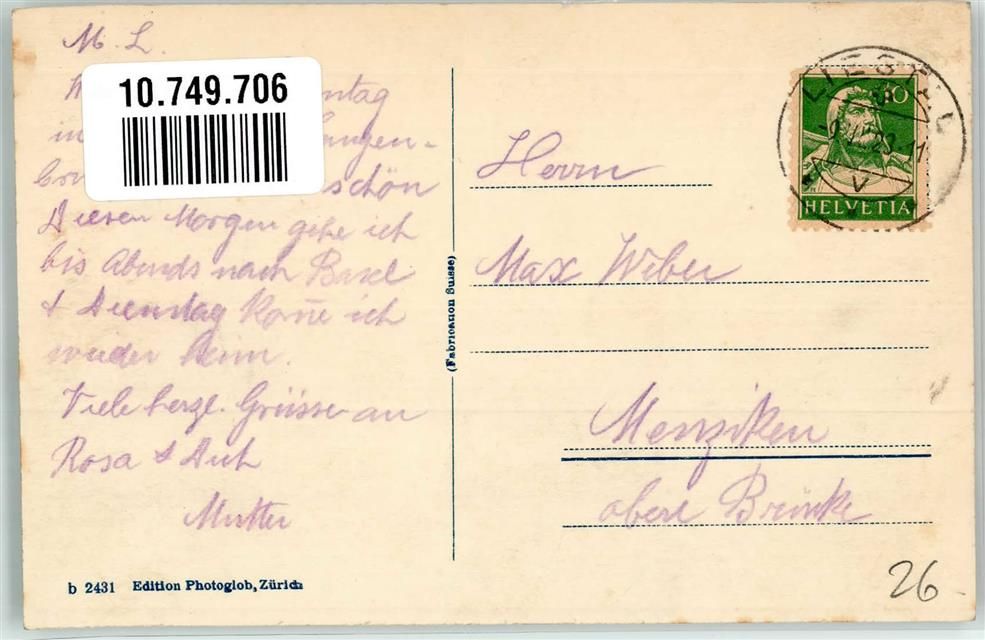 M. L.
10.749.706
schön
Diesen Morgen gehe ich
bis Abends nach Basel
& Dienstag kom̄e ich
wieder heim.
Viele herzl. Grüsse an
Rosa & Dich
Mutter
b 2431 Edition Photoglob, Zürich
(Fabrication Suisse)
LIESTAL
10
HELVETIA
Herrn
Max Weber
Menziken
obere Brücke
26